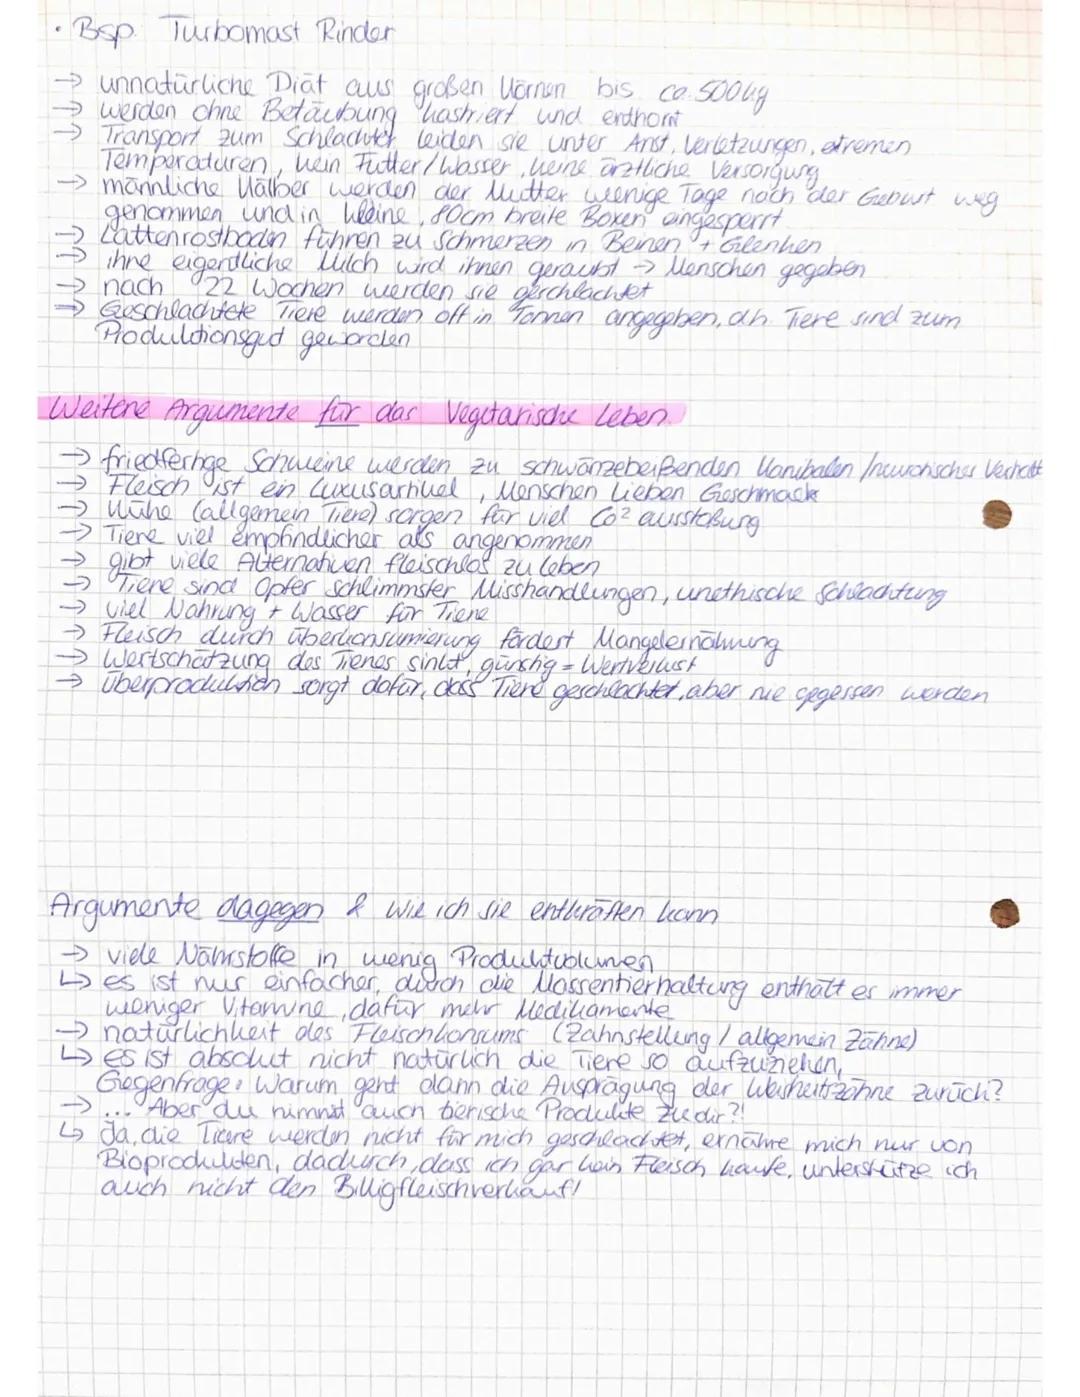 · Bsp. Turbomast Rinder
→ unnatürliche Diät aus großen Körnen bis ca. 500kg
→ werden ohne Betäubung kastriert und enthornt
→ Transport zum Schlachter leiden sie unter Anst, Verletzungen, etremen
Temperaturen, kein Futter/Wasser, keine ärztliche Versorgung
→ männliche Kälber werden der Mutter wenige Tage nach der Geburt weg
genommen und in kleine, 80cm breite Boxen eingesperrt
→ Lattenrostboden führen zu Schmerzen in Beinen + Glenken
→ ihne eigentliche Milch wird ihnen geraubt → Menschen gegeben
→ nach 22 Wochen werden sie geschlachtet
⇒ Geschlachtete Tiere werden oft in Tonnen angegeben, dh. Tiere sind zum
Produktionsgut geworden
Weitere Argumente für das Vegetarische Leben
→ friedfertige Schweine werden zu schwänzebeißenden Kanibalen /neurotisches Verhalt
→ Fleisch ist ein Luxusartikel, Menschen lieben Geschmack
→ Kühe (allgemein Tiere) sorgen für viel Co² ausstoßung
→ Tiere viel empfindlicher als angenommen
→ gibt viele Alternativen fleischlos zu leben
→ Tiere sind Opfer schlimmster Misshandlungen, unethische Schlachtung
→ viel Nahrung + Wasser für Tiere
→ Fleisch durch überkonsumierung fördert Mangelernährung
→ Wertschätzung des Tieres sinkt, günstig = Wertverlust
→ Überproduktion sorgt dafür, dass Tiere geschlachtet, aber nie gegessen werden
Argumente dagegen & wie ich sie entkräften kann
→ viele Nährstoffe in wenig Produktvolumen
↳ es ist nur einfacher, durch die Massentierhaltung enthält es immer
weniger Vitamine, dafür mehr Medikamente
→ natürlichkeit des Fleischkonsums (Zahnstellung / allgemein Zähne)
↳ es ist absolut nicht natürlich die Tiere so aufzuziehen,
Gegenfrage: Warum geht dann die Ausprägung der Weisheitszähne zurück?
→ ... Aber du nimmst auch tierische Produkte zu dir?!
↳ Ja, die Tiere werden nicht für mich geschlachtet, ernähre mich nur von
Bioprodukten, dadurch, dass ich gar kein Fleisch kaufe, unterstütze ich
auch nicht den Billigfleischverkauf!